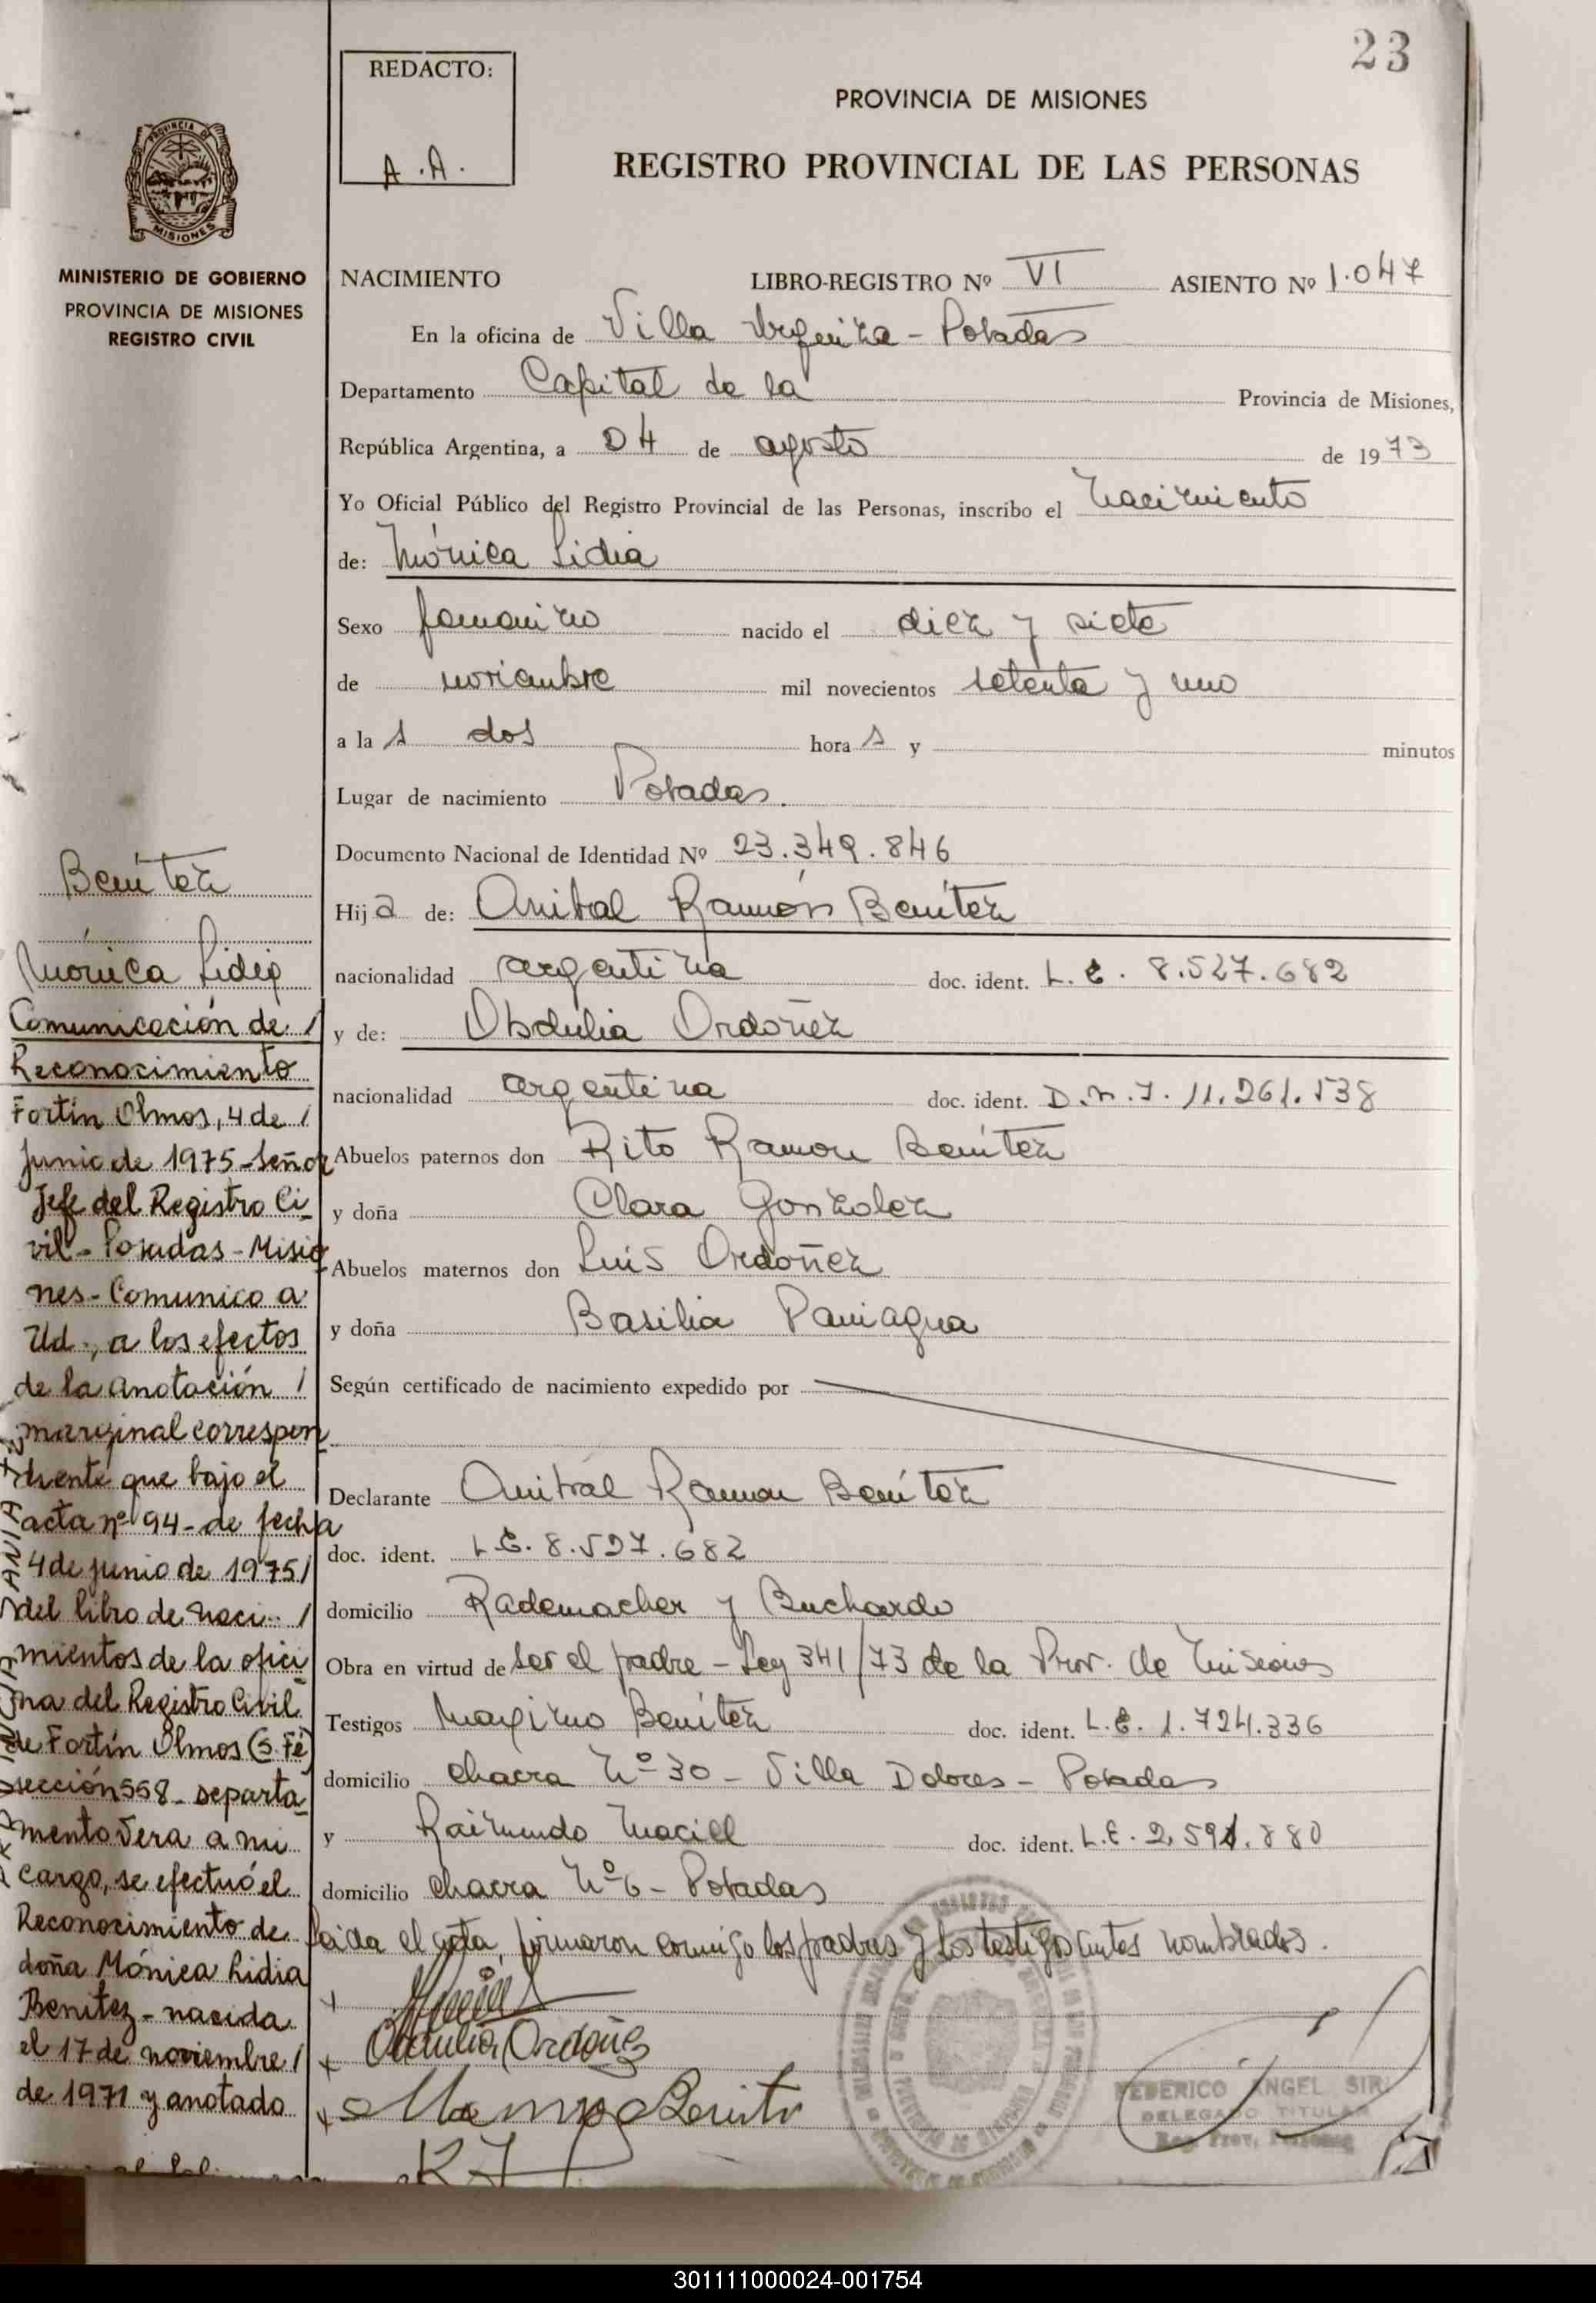 23
REDACTO:
A.A.
PROVINCIA DE MISIONES
REGISTRO PROVINCIAL DE LAS PERSONAS
PROVINCIA DE
MISIONES
MINISTERIO DE GOBIERNO
PROVINCIA DE MISIONES
REGISTRO CIVIL
NACIMIENTO LIBRO-REGISTRO Nº VI ASIENTO Nº 1.047
En la oficina de Villa Urquiza - Posadas
Departamento Capital de la Provincia de Misiones,
República Argentina, a 04 de agosto de 1973
Yo Oficial Público del Registro Provincial de las Personas, inscribo el nacimiento
de: Mónica Lidia
Sexo femenino nacido el diez y siete
de noviembre mil novecientos setenta y uno
a la s dos hora s y minutos
Lugar de nacimiento Posadas.
Documento Nacional de Identidad Nº 23.349.846
Hij a de: Anibal Ramón Benítez
nacionalidad argentina doc. ident. L.E. 8.527.682
y de: Obdulia Ordoñez
nacionalidad argentina doc. ident. D.N.I. 11.261.538
Abuelos paternos don Rito Ramon Benítez
y doña Clara Gonzalez
Abuelos maternos don Luis Ordoñez
y doña Basilia Paniagua
Según certificado de nacimiento expedido por
Declarante Anibal Ramon Benítez
doc. ident. L.E. 8.527.682
domicilio Rademacher y Buchardo
Obra en virtud de ser el padre - Ley 341/73 de la Prov. de Misiones
Testigos Maximo Benítez doc. ident. L.E. 1.724.336
domicilio chacra Nº 30 - Villa Dolores - Posadas
y Raimundo Maciel doc. ident. L.E. 2.591.880
domicilio chacra Nº 6 - Posadas
Leida el acta, firmaron conmigo los padres y los testigos antes nombrados.
Obdulia Ordoñez
Benito
FEDERICO ANGEL SIRI
DELEGADO TITULAR
Reg. Prov. Personas
Benítez
Mónica Lidia
Comunicación de /
Reconocimiento
Fortín Olmos, 4 de /
junio de 1975 - Señor
Jefe del Registro Ci-
vil - Posadas - Misio
nes - Comunico a
Ud., a los efectos
de la anotación /
marginal correspon
diente que bajo el
acta nº 94 - de fecha
4 de junio de 1975 /
del libro de naci- /
mientos de la ofici
na del Registro Civil
de Fortín Olmos (S. Fé)
sección 558 - departa-
mento Vera a mi
cargo, se efectuó el
Reconocimiento de
doña Mónica Lidia
Benítez - nacida
el 17 de noviembre /
de 1971 y anotado
301111000024-001754